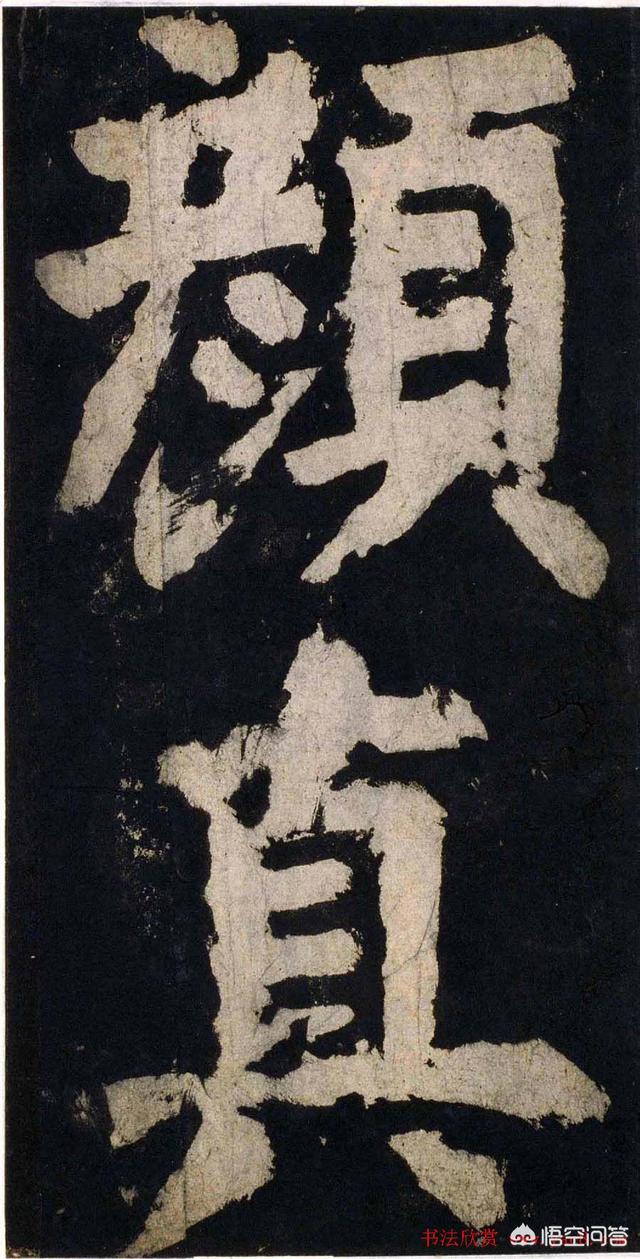 顔
真
书法欣赏
悟空问答